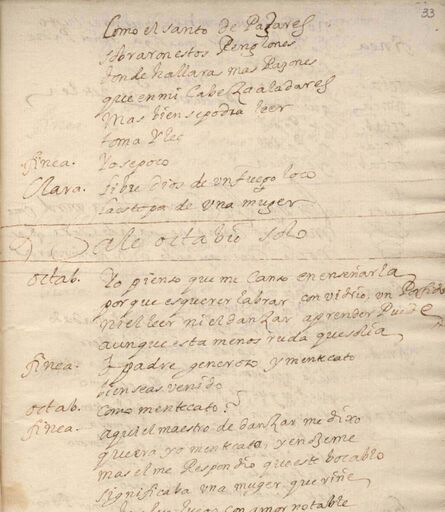 33
Como el santo de Pajares
sobraron estos Renglones
donde hallaras mas Razones
que en mi cabeza aladares
Mas bien se podra leer
toma y lee
finea. Yo se poco
Clara. libre dios de un fuego loco
la estopa de una muger
Sale octabio solo
octab. Yo pienso que me canso en enseñarla
porque es querer labrar con vidrio, un Porfido
ni el leer ni el danzar aprender Puede
aunque esta menos ruda que solia
finea. padre generoso y mentecato
bien seas venido
octab. Como mentecato?
finea. aqui el maestro de danzar me dixo
que era yo mentecata, y enojeme
mas el me Respondio que este bocablo
significaba una muger que riñe
con amor notable